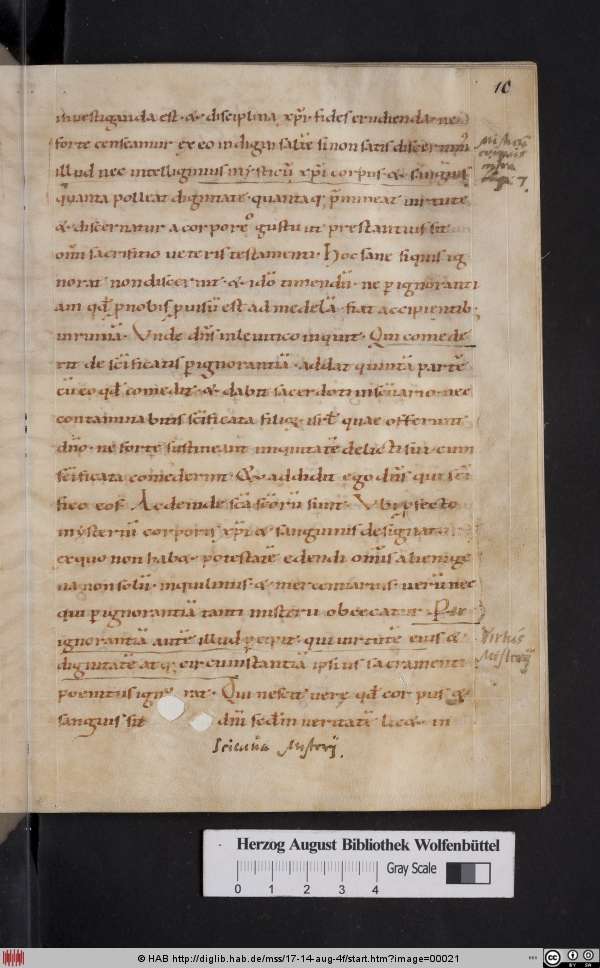 10
inuestiganda est · & disciplina xp̄i · fides erudienda · ne
forte censeamur ex eo indigni si alit̄ si non satis discernim̄
illud nec intelligimus mysticū xp̄i corpus & sanguis
quanta polleat dignitate · quantaq; p̄mineat uirtute
& discernatur a corporeo gustu ut prestantius sit
om̄i sacrificio ueteris testamenti · Hoc sane siquis ig
norat non discernit · & idō timendū · ne p ignoranti
am qd̄ p nobis puisū est ad medelā · fiat accipientib;
in ruinā · Unde dn̄s in leuitico inquit · Qui comede
rit de sc̄ificatis p ignorantiā · addat quintā partē
cū eo qd̄ comedit · & dabit sacerdoti in sc̄uario · nec
contaminabitis sc̄ificata filioȝ · isrl̄ quae offerunt
dn̄o · ne forte sustineant iniquitatē delicti sui · cum
sc̄ificata comederint · & addidit ego dn̄s qui sc̄i
fico eos · Ac deinde sc̄a sc̄orū sunt · Ubi pfecto
mysteriū corporis xp̄i & sanguinis designat
ex quo non hab& · potestatē edendi om̄is alienige
na non solū · inquilinus · & mercennarius · uerū nec
qui p ignorantiā tanti misterii obcecatur · Per
ignorantiā autē illud pcipit · qui uirtutē eius &
dignitatē atq; circumstantiā ipsius sacramenti
poenitus igno rat · Qui nescit uere qd̄ corpus &
sanguis sit dn̄i sedm ueritatē · lic& · in
Virtus
Misterij
Misterij
Herzog August Bibliothek Wolfenbüttel
Gray Scale
0 1 2 3 4
© HAB http://diglib.hab.de/mss/17-14-aug-4f/start.htm?image=00021
CC BY SA